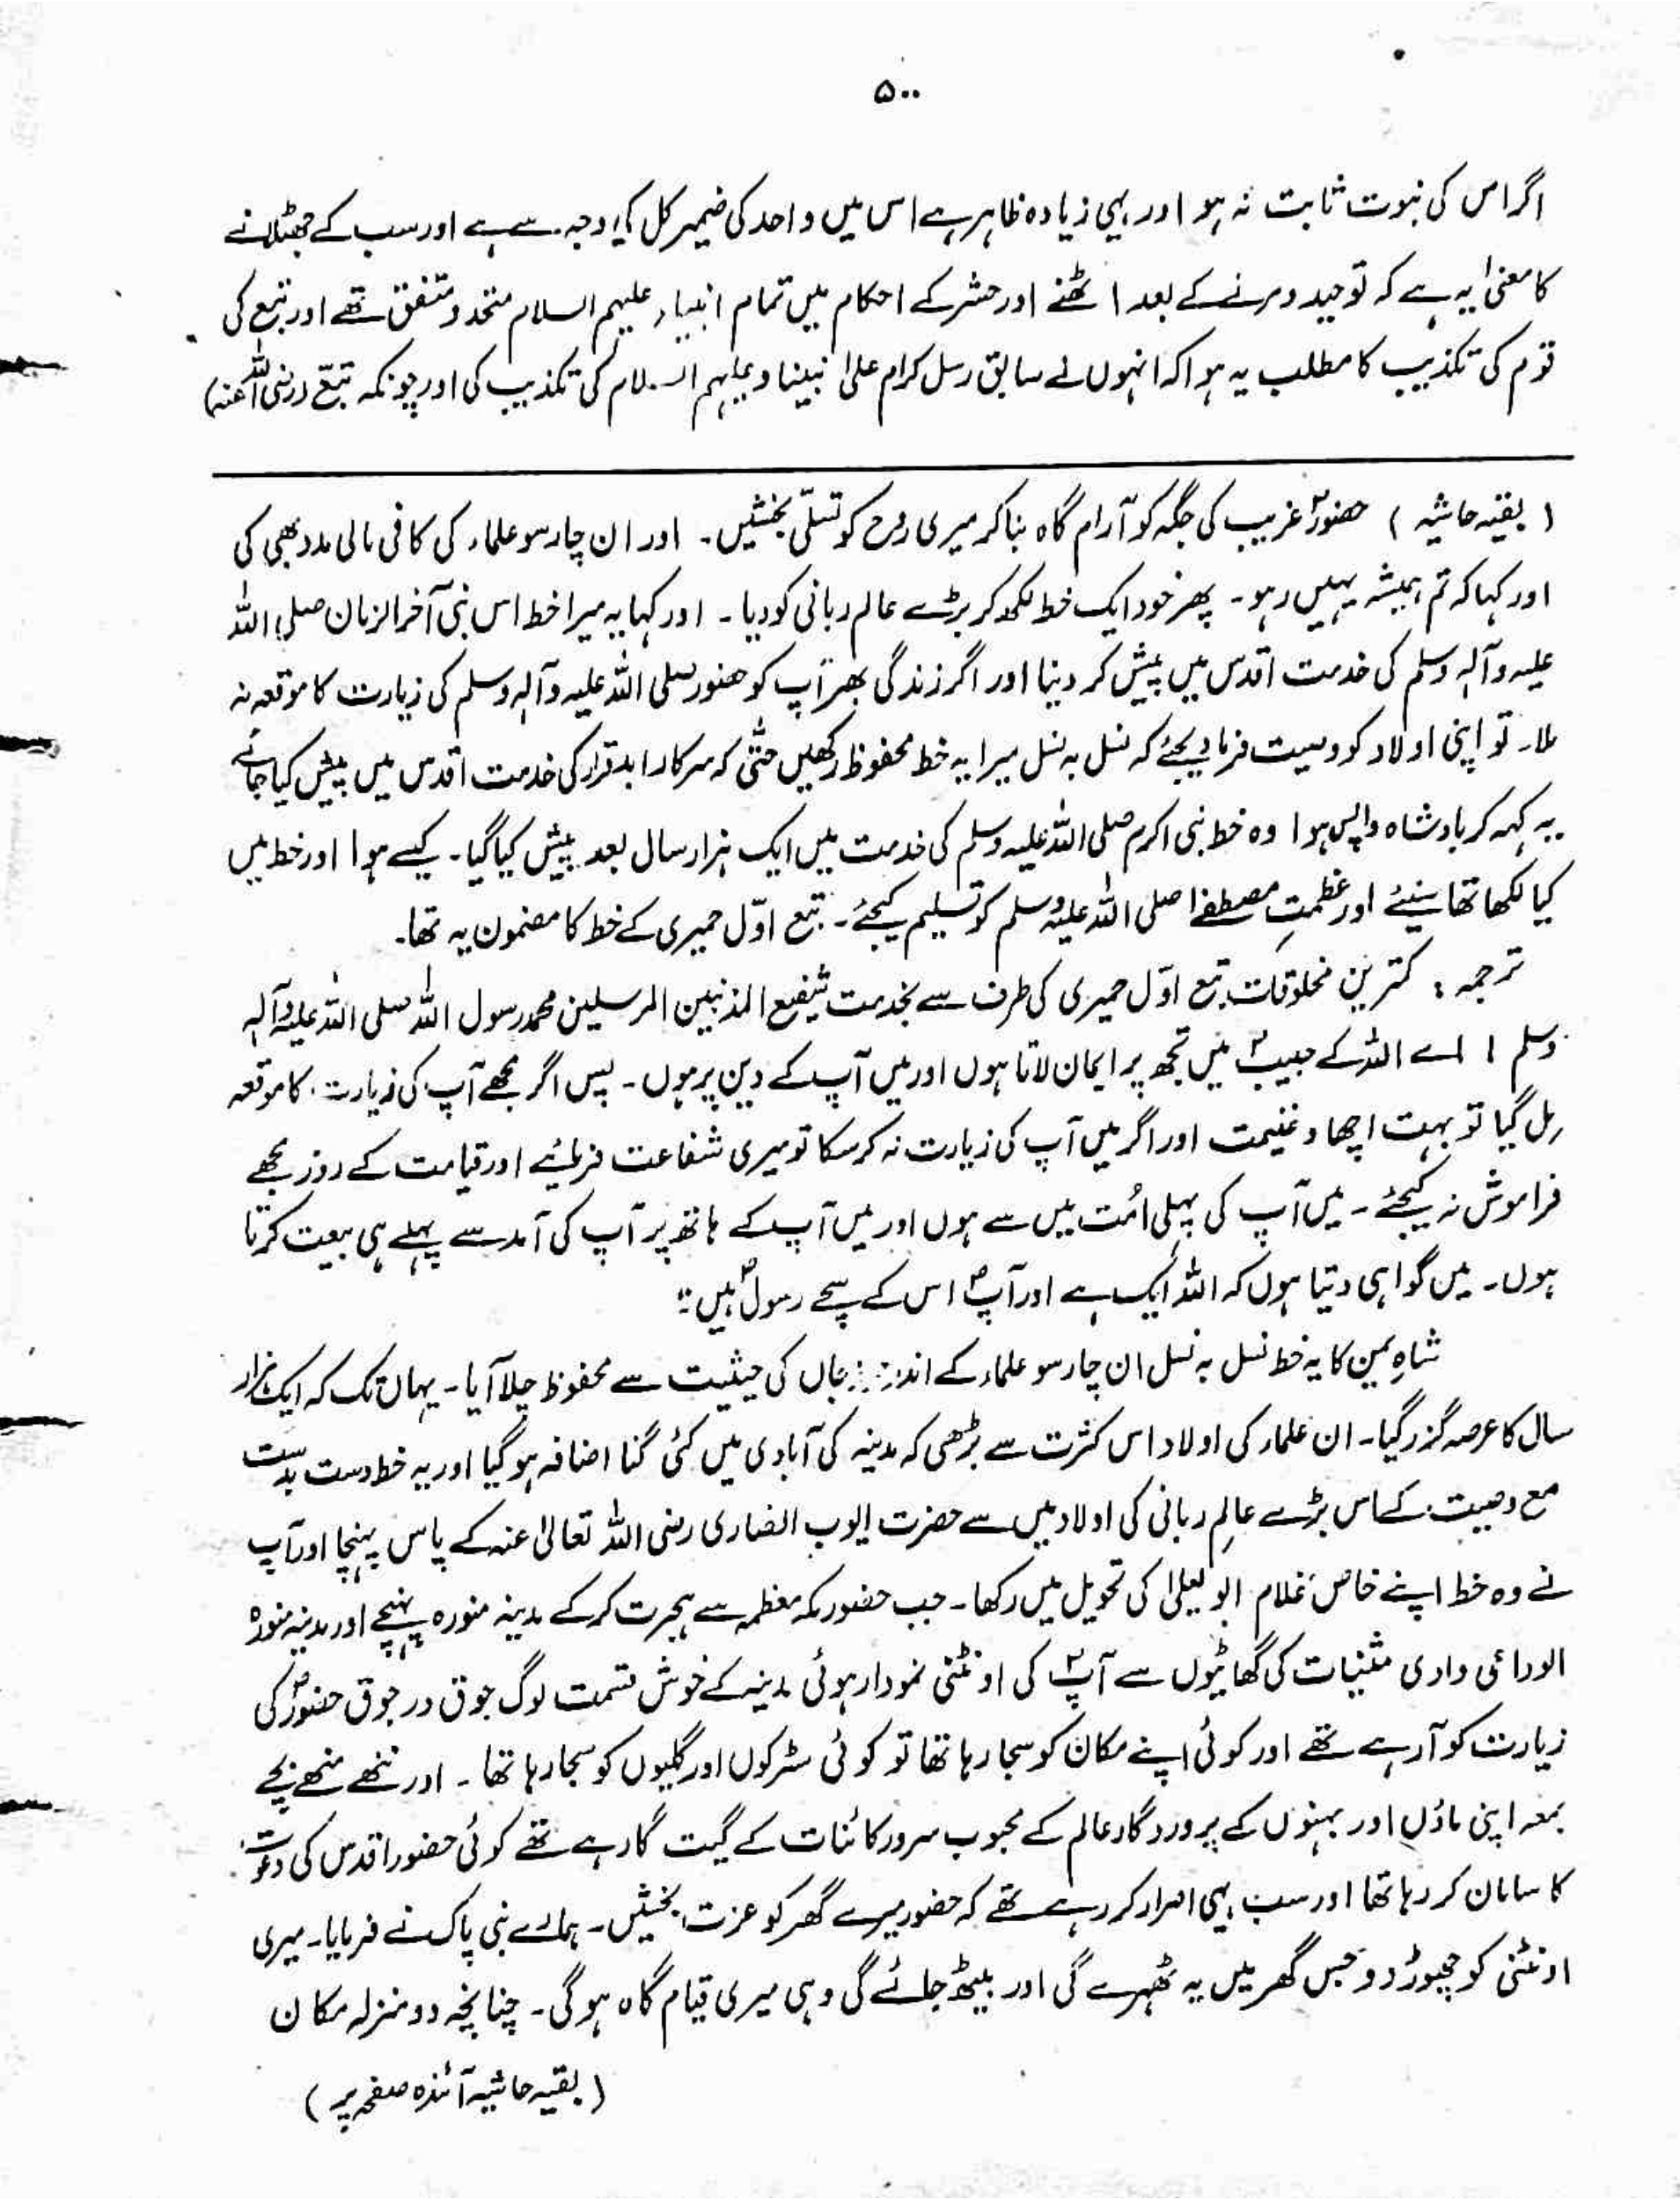 ۵۰۰
اگر اس کی نبوت ثابت نہ ہو اور یہی زیادہ ظاہر ہے اس میں واحد کی ضمیر کل کی وجہ سے ہے اور سب کے جھٹلانے
کا معنیٰ یہ ہے کہ توحید و مرنے کے بعد اٹھنے اور حشر کے احکام میں تمام انبیاء علیہم السلام متحد و متفق تھے اور تبع کی
قوم کی تکذیب کا مطلب یہ ہوا کہ انہوں نے سابق رسل کرام علیٰ نبینا وعلیہم السلام کی تکذیب کی اور چونکہ تبع (رضی اللہ عنہ)
( بقیہ حاشیہ ) حضورؐ غریب کی جگہ کو آرام گاہ بنا کر میری روح کو تسلّی بخشیں۔ اور ان چار سو علماء کی کافی مالی مدد بھی کی
اور کہا کہ تم ہمیشہ یہیں رہو۔ پھر خود ایک خط لکھ کر بڑے عالم ربانی کو دیا۔ اور کہا یہ میرا خط اس نبی آخر الزمان صلی اللہ
علیہ وآلہ وسلم کی خدمت اقدس میں پیش کر دینا اور اگر زندگی بھر آپ کو حضور صلی اللہ علیہ وآلہ وسلم کی زیارت کا موقعہ نہ
ملا۔ تو اپنی اولاد کو وصیت فرما دیجئے کہ نسل بہ نسل میرا یہ خط محفوظ رکھیں حتّٰی کہ سرکار ابد قرار کی خدمت اقدس میں پیش کیا جائے
یہ کہہ کر بادشاہ واپس ہوا وہ خط نبی اکرم صلی اللہ علیہ وسلم کی خدمت میں ایک ہزار سال بعد پیش کیا گیا۔ کیسے ہوا اور خط میں
کیا لکھا تھا سنیئے اور عظمتِ مصطفےٰ صلی اللہ علیہ وسلم کو تسلیم کیجئے۔ تبع اوّل حمیری کے خط کا مضمون یہ تھا۔
ترجمہ : کمترین مخلوقات تبع اوّل حمیری کی طرف سے بخدمت شفیع المذنبین المرسلین محمد رسول اللہ صلی اللہ علیہ وآلہ
وسلم ! اے اللہ کے حبیبؐ میں تجھ پر ایمان لاتا ہوں اور میں آپ کے دین پر ہوں۔ پس اگر مجھے آپ کی زیارت کا موقعہ
مل گیا تو بہت اچھا و غنیمت اور اگر میں آپ کی زیارت نہ کر سکا تو میری شفاعت فرمائیے اور قیامت کے روز مجھے
فراموش نہ کیجئے۔ میں آپ کی پہلی اُمت میں سے ہوں اور میں آپ کے ہاتھ پر آپ کی آمد سے پہلے ہی بیعت کرتا
ہوں۔ میں گواہی دیتا ہوں کہ اللہ ایک ہے اور آپؐ اس کے سچے رسولؐ ہیں"
شاہِ یمن کا یہ خط نسل بہ نسل ان چار سو علماء کے اندر جان کی حیثیت سے محفوظ چلا آیا۔ یہاں تک کہ ایک ہزار
سال کا عرصہ گزر گیا۔ ان علماء کی اولاد اس کثرت سے بڑھی کہ مدینہ کی آبادی میں کئی گنا اضافہ ہو گیا اور یہ خط دست بدست
مع وصیت کے اس بڑے عالمِ ربانی کی اولاد میں سے حضرت ایوب انصاری رضی اللہ تعالیٰ عنہ کے پاس پہنچا اور آپ
نے وہ خط اپنے خاص غلام ابو لیلیٰ کی تحویل میں رکھا۔ جب حضور مکہ معظمہ سے ہجرت کر کے مدینہ منورہ پہنچے اور مدینہ منورہ
الوداعی وادی مثنیات کی گھاٹیوں سے آپؐ کی اونٹنی نمودار ہوئی مدینہ کے خوش قسمت لوگ جوق در جوق حضورؐ کی
زیارت کو آ رہے تھے اور کوئی اپنے مکان کو سجا رہا تھا تو کوئی سڑکوں اور گلیوں کو سجا رہا تھا۔ اور ننھے منھے بچے
بمعہ اپنی ماؤں اور بہنوں کے پروردگار عالم کے محبوب سرور کائنات کے گیت گا رہے تھے کوئی حضور اقدس کی دعوت
کا سامان کر رہا تھا اور سب یہی اصرار کر رہے تھے کہ حضور میرے گھر کو عزت بخشیں۔ ہمارے نبی پاک نے فرمایا۔ میری
اونٹنی کو چھوڑ دو جس گھر میں یہ ٹھہرے گی اور بیٹھ جائے گی وہی میری قیام گاہ ہو گی۔ چنانچہ دو منزلہ مکان
( بقیہ حاشیہ آئندہ صفحہ پر )